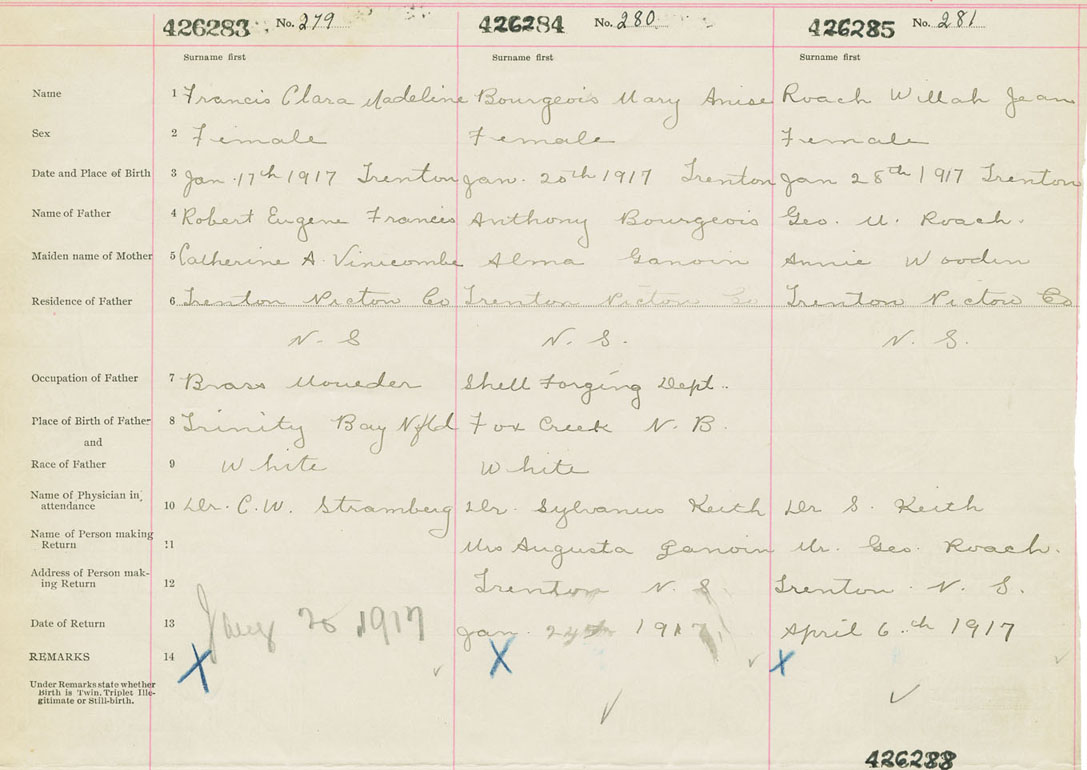 426283 No. 279 426284 No. 280 426285 No. 281
Surname first Surname first Surname first
Name 1 Francis Clara Madeline Bourgeois Mary Anise Roach Willah Jean
Sex 2 Female Female Female
Date and Place of Birth 3 Jan. 17th 1917 Trenton Jan. 20th 1917 Trenton Jan 28th 1917 Trenton
Name of Father 4 Robert Eugene Francis Anthony Bourgeois Geo. U. Roach.
Maiden name of Mother 5 Catherine A. Vinicombe Alma Ganoin Annie Wooden
Residence of Father 6 Trenton Pictou Co Trenton Pictou Co Trenton Pictou Co
N. S N. S. N S.
Occupation of Father 7 Brass Moueder Shell Forging Dept..
Place of Birth of Father 8 Trinity Bay Nfld Fox Creek N. B.
and
Race of Father 9 White White
Name of Physician in attendance 10 Dr. C. W. Stramberg Dr. Sylvanus Keith Dr S. Keith
Name of Person making Return 11 Mrs Augusta Ganoin Mr. Geo. Roach.
Address of Person making Return 12 Trenton N. S Trenton N. S.
Date of Return 13 Jany 20 1917 Jan 1917 April 6th 1917
REMARKS 14 X X X
Under Remarks state whether
Birth is Twin, Triplet Ille-
gitimate or Still-birth.
426288